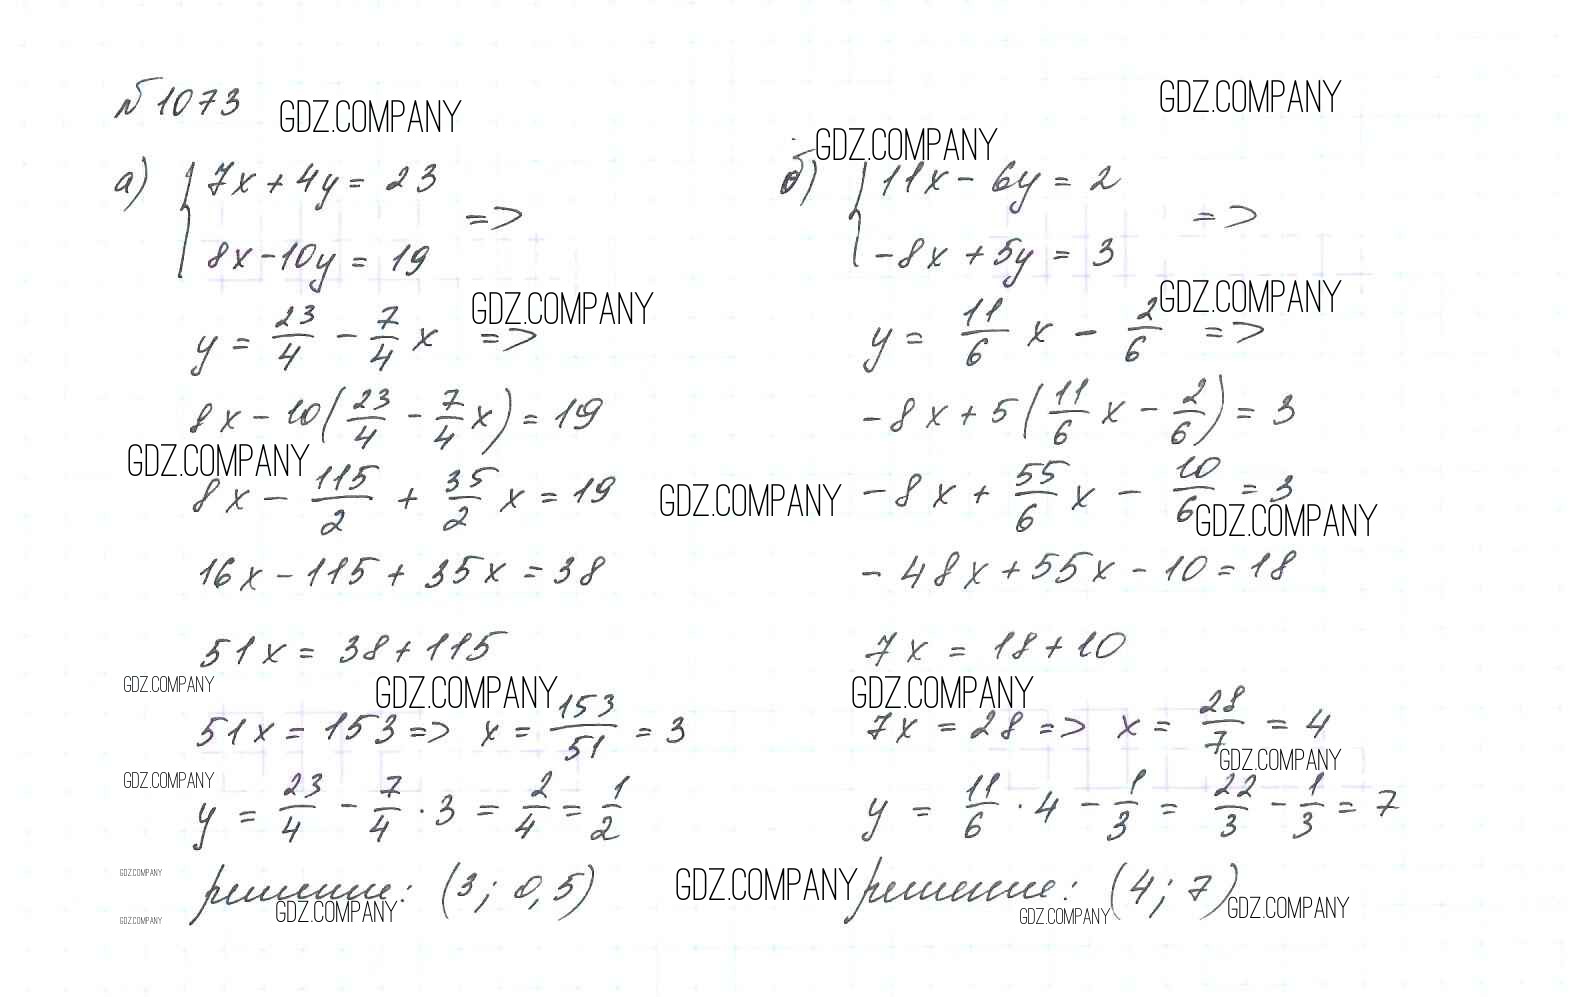 № 1073
GDZ.COMPANY
GDZ.COMPANY
GDZ.COMPANY
а) { 7x + 4y = 23
8x - 10y = 19 =>
y = 23/4 - 7/4 x =>
GDZ.COMPANY
8x - 10(23/4 - 7/4 x) = 19
GDZ.COMPANY
8x - 115/2 + 35/2 x = 19
16x - 115 + 35x = 38
51x = 38 + 115
GDZ.COMPANY
GDZ.COMPANY
51x = 153 => x = 153/51 = 3
GDZ.COMPANY
y = 23/4 - 7/4 · 3 = 2/4 = 1/2
GDZ.COMPANY
решение: (3; 0,5)
GDZ.COMPANY
GDZ.COMPANY
б) { 11x - 6y = 2
-8x + 5y = 3 =>
GDZ.COMPANY
y = 11/6 x - 2/6 =>
-8x + 5(11/6 x - 2/6) = 3
GDZ.COMPANY
-8x + 55/6 x - 10/6 = 3
GDZ.COMPANY
-48x + 55x - 10 = 18
7x = 18 + 10
GDZ.COMPANY
7x = 28 => x = 28/7 = 4
GDZ.COMPANY
y = 11/6 · 4 - 1/3 = 22/3 - 1/3 = 7
GDZ.COMPANY
решение: (4; 7)
GDZ.COMPANY
GDZ.COMPANY